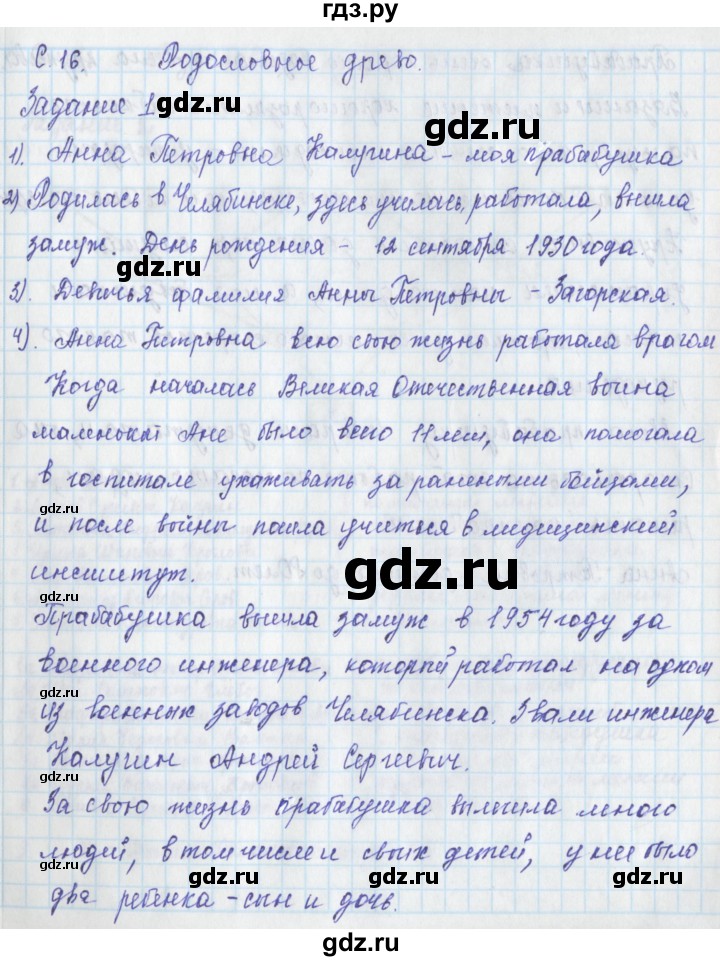 гдз.ру
С 16. Родословное древо.
Задание 1.
gdz.ru
1). Анна Петровна Калугина - моя прабабушка
gdz.ru
2) Родилась в Челябинске, здесь училась, работала, вышла
замуж. День рождения - 12 сентября 1930 года.
gdz.ru
gdz.ru
3). Девичья фамилия Анны Петровны - Загорская.
4). Анна Петровна всю свою жизнь работала врагом
gdz.ru
Когда началась Великая Отечественная война
маленькой Ане было всего 11 лет, она помогала
gdz.ru
gdz.ru
в госпитале ухаживать за ранеными бойцами,
и после войны пошла учиться в мидицинский
gdz.ru
институт.
gdz.ru
gdz.ru
Прабабушка вышла замуж в 1954 году за
военного инженера, который работал на одном
gdz.ru
gdz.ru
из военных заводов Челябинска. Звали инженера
Калугин Андрей Сергеевич.
gdz.ru
За свою жизнь прабабушка вылечила много
людей, в том числе и своих детей, у нее было
gdz.ru
gdz.ru
два ребенка - сын и дочь.
gdz.ru